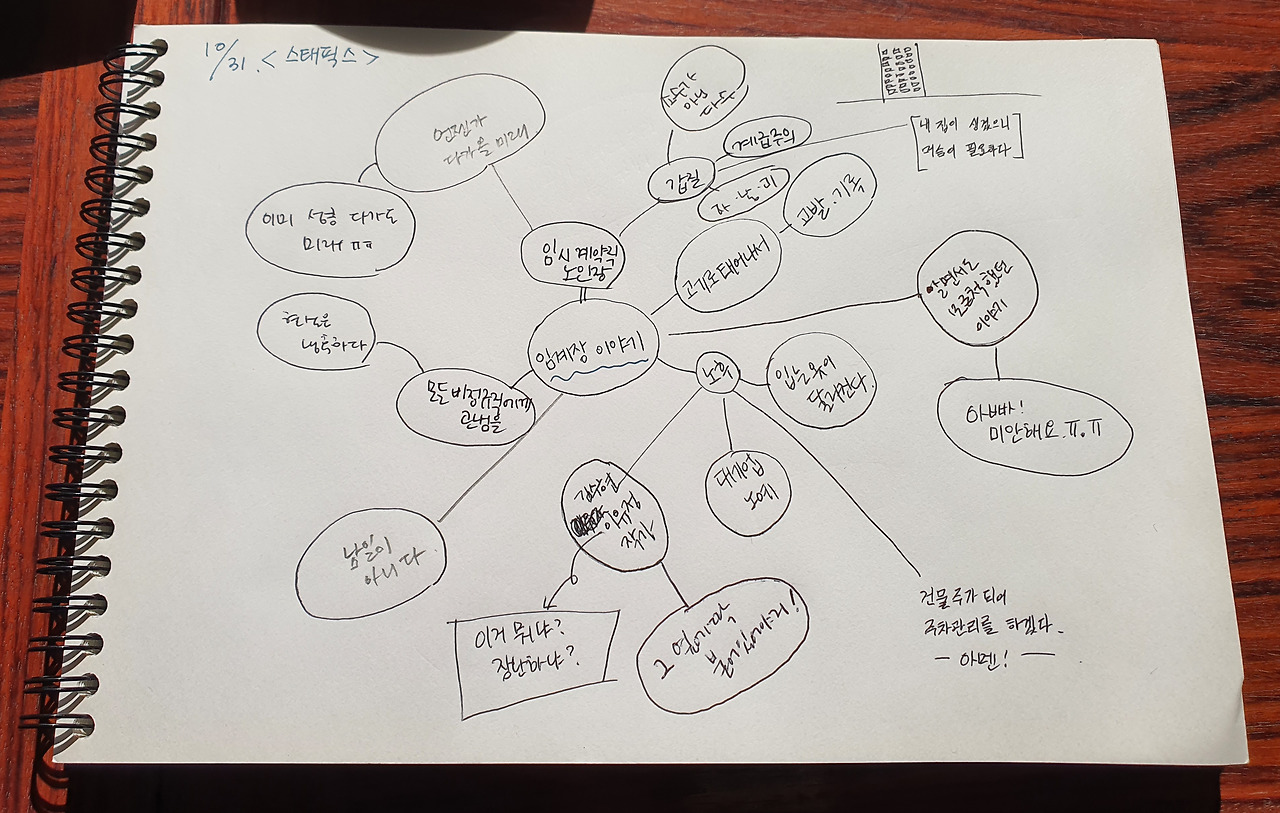 10/31. <스태픽스>
언젠가
다가올 미래
이미 성큼 다가온
미래 ㅠㅠ
아닌
다수
계급주의
갑질
[내 집이 생겼으니
머슴이 필요하다]
고발.기록
고기로 태어나서
임시 계약직
노인장
임계장 이야기
알면서도
모르척 했던
이야기
아빠!
미안해요 ㅠ.ㅠ
현실은
냉혹하다
모든 비정규직에게
관심을
노학
입는 옷이
달라진다.
대기업
노예
이유정
작가
남일이
아니다.
이거 뭐냐?
장난하냐?
그 옆에 딱
붙어있어야지!
건물주가 되어
주차관리를 하겠다.
- 아멘! -